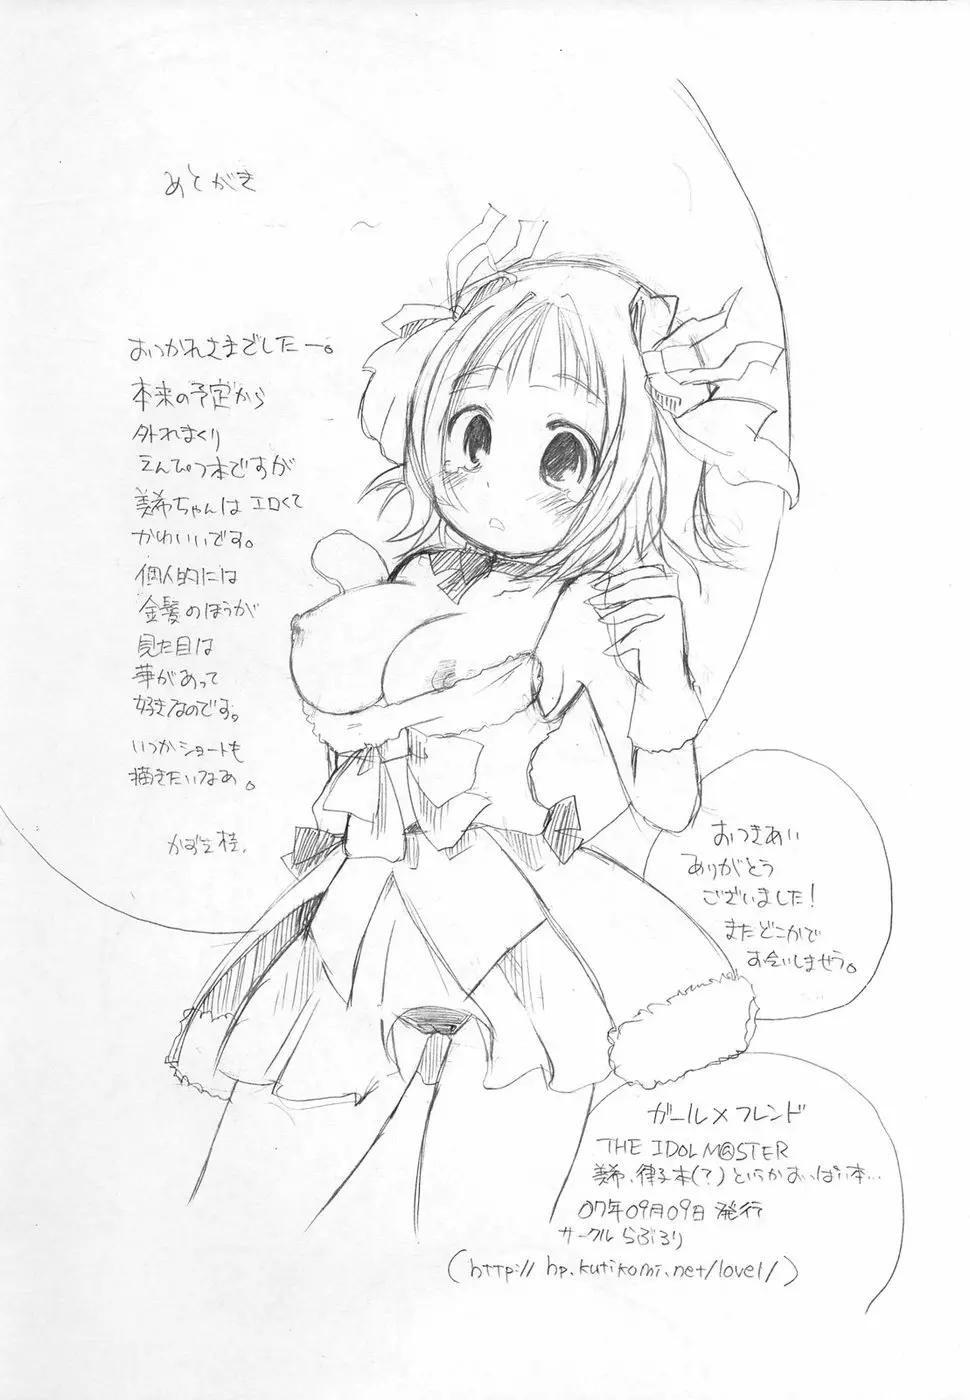 あとがき
おつかれさまでしたー。
本来の予定から
外れまくり
えんぴつ本ですが
美希ちゃんはエロくて
かわいいです。
個人的には
金髪のほうが
見た目は
華があって
好きなのです。
いつかショートも
描きたいなあ。
かずま桂.
おつきあい
ありがとう
ございました!
またどこかで
お会いしませう。
ガール×フレンド
THE IDOLM@STER
美希、律子本(?)というかおっぱい本…
07年09月09日 発行
サークル らぶろり
(http://hp.kutikomi.net/lovel/)